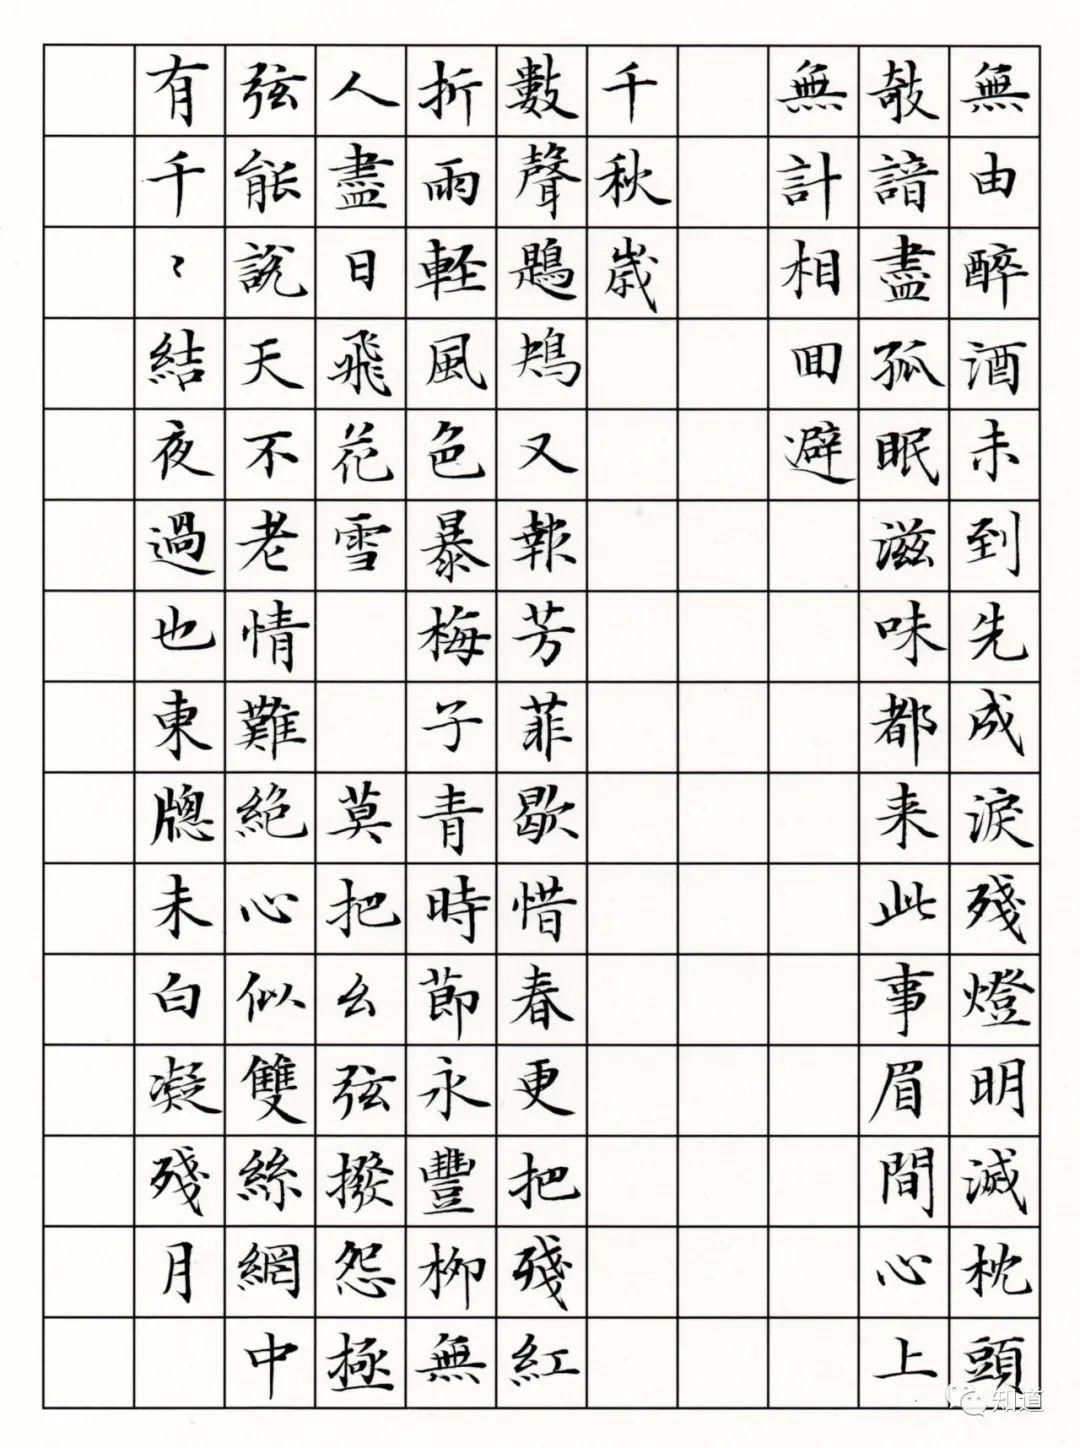 無由醉酒未到先成淚殘燈明滅枕頭
敧諳盡孤眠滋味都来此事眉間心上
無計相囬避
千秋歳
數聲鶗鴂又報芳菲歇惜春更把殘紅
折雨軽風色暴梅子青時節永豐柳無
人盡日飛花雪　　莫把幺弦撥怨極
弦能說天不老情難絕心似雙絲網中
有千〻結夜過也東牕未白凝殘月
知道